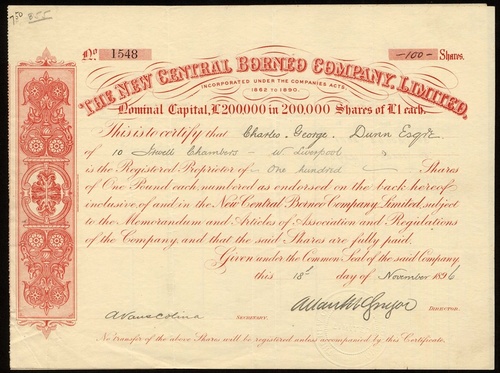 7.50 855
No. 1548 -100- Shares.
THE NEW CENTRAL BORNEO COMPANY, LIMITED,
INCORPORATED UNDER THE COMPANIES ACTS,
1862 TO 1890.
Nominal Capital, £200000 in 200,000 Shares of £1 each.
This is to certify that Charles George Dunn Esqre
of 10 Irwell Chambers - W Liverpool
is the Registered Proprietor of One hundred Shares
of One Pound each, numbered as endorsed on the back hereof
inclusive, of and in the New Central Borneo Company, Limited, subject
to the Memorandum and Articles of Association and Regulations
of the Company, and that the said Shares are fully paid.
Given under the Common Seal of the said Company,
this 18th day of November 1896
SECRETARY. DIRECTOR.
No transfer of the above Shares will be registered unless accompanied by this Certificate.